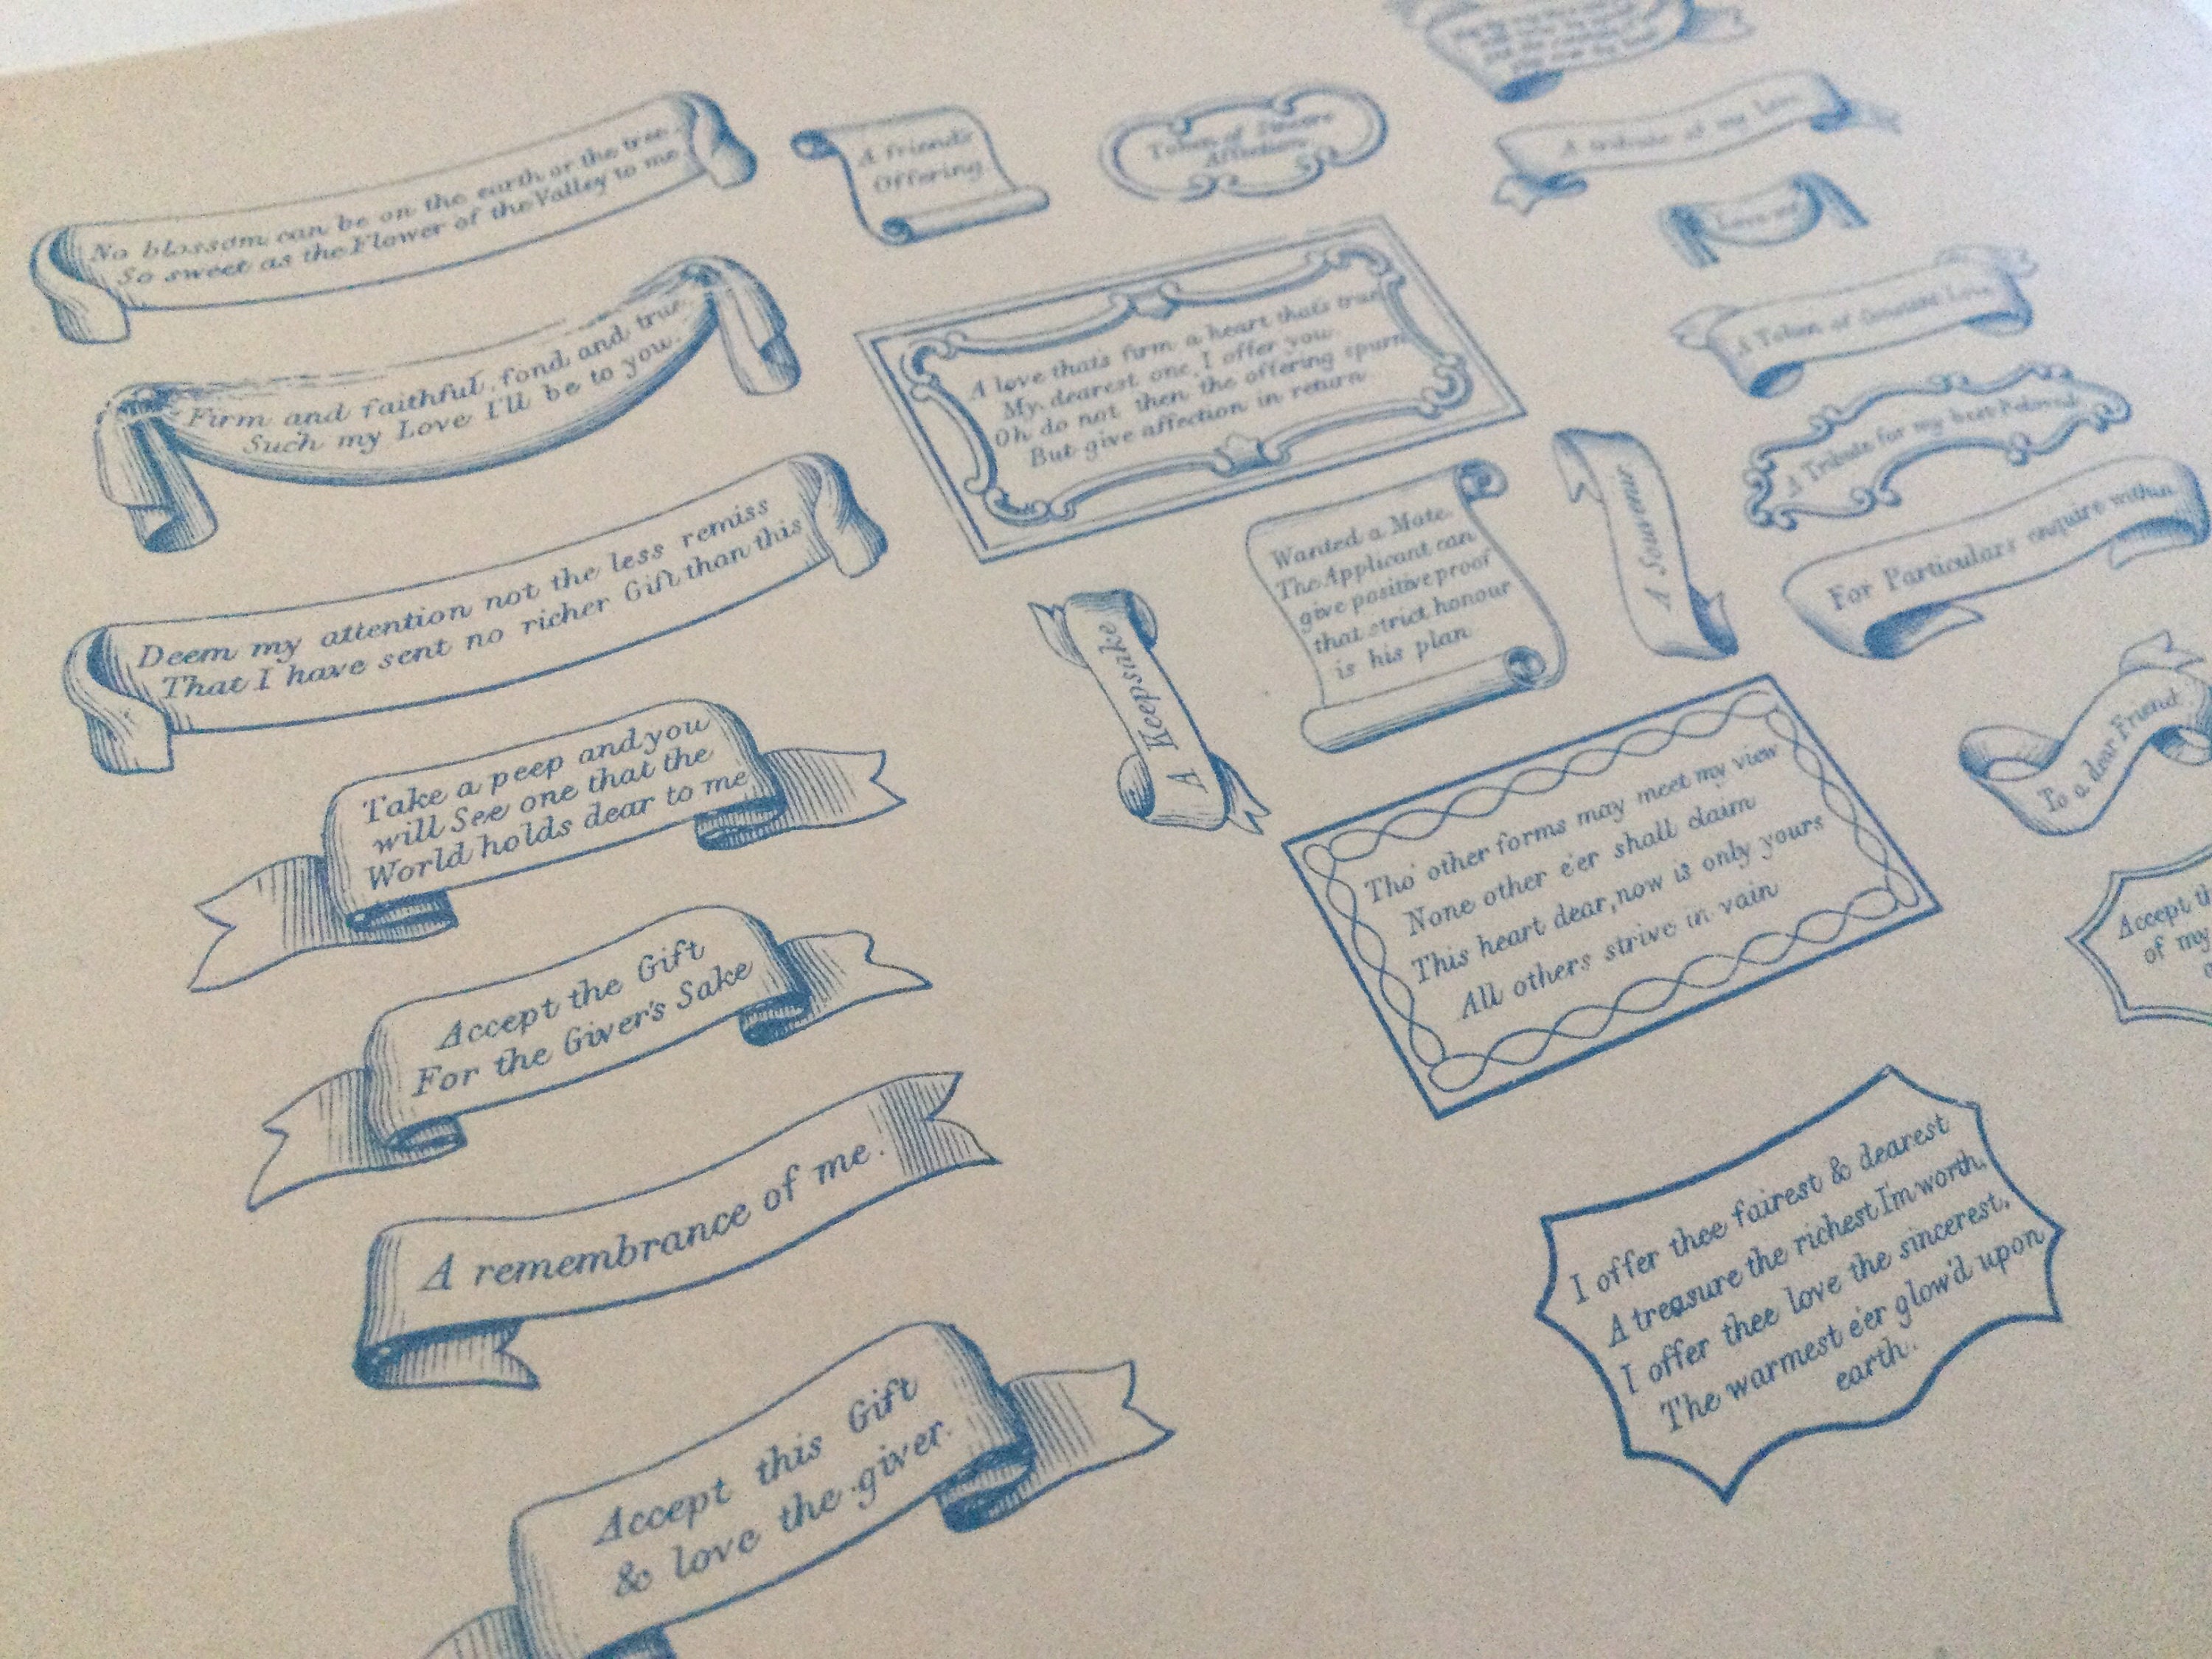 No blossom can be on the earth or the tree.
So sweet as the Flower of the Valley to me
Firm and faithful, fond and true.
Such my Love I'll be to you.
Deem my attention not the less remiss
That I have sent no richer Gift than this
Take a peep and you
will See one that the
World holds dear to me
Accept the Gift
For the Giver's Sake
A remembrance of me.
Accept this Gift
& love the giver.
A friend's
Offering
Token of Sincere
Affection
A love that's firm a heart that's true
My dearest one, I offer you.
Oh do not then the offering spurn
But give affection in return
A Keepsake
Wanted a Mate.
The Applicant can
give positive proof
that strict honour
is his plan
A Souvenir
Tho' other forms may meet my view
None other e'er shall claim
This heart dear, now is only yours
All others strive in vain
I offer thee fairest & dearest
A treasure the richest I'm worth.
I offer thee love the sincerest.
The warmest e'er glow'd upon
earth.
A tribute of my Love
Love me
A Token of Constant Love
A Tribute for my best Beloved
For Particulars enquire within
To a dear Friend
Accept
of my